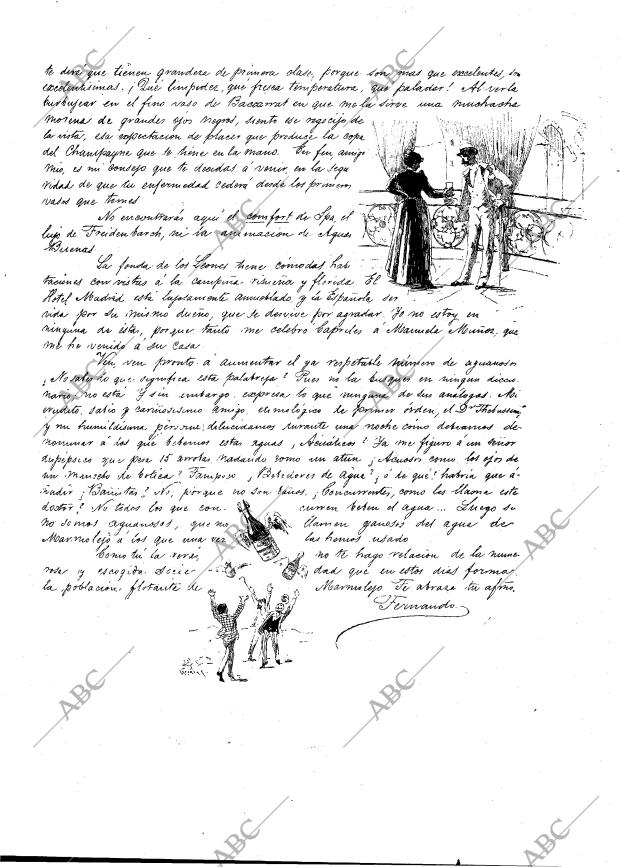 te dirá que tienen grandeza de primera clase, porque son mas que excelentes, son
excelentísimas. ¡Qué limpidez, qué fresca temperatura, qué paladar! Al verla
burbujear en el fino vaso de Baccarrat en que me la sirve una muchacha
morena de grandes ojos negros, siento ese regocijo de
la vista, esa expectacion de placer que produce la copa
del Champagne que se tiene en la mano. En fin, amigo
mio, es mi consejo que te decidas á venir, en la segu
ridad de que tu enfermedad cederá desde los primeros
vasos que tomes.
No encontrarás aquí el comfort de Spa, el
lujo de Freidenbarch, ni la animacion de Aguas
Buenas.
La fonda de los Leones tiene cómodas habi
taciones con vistas á la campiña risueña y florida. El
Hotel Madrid está lujosamente amueblado, y la Española ser
vida por su mismo dueño, que se desvive por agradar. Yo no estoy en
ninguna de éstas, porque tanto me celebró Capriles á Manuela Muñoz, que
me he venido á su casa.
Ven, ven pronto á aumentar el ya respetable número de aguanosos
¿No sabes lo que significa esta palabreja? Pues no la busques en ningun diccio
nario, no está. Y sin embargo expresa lo que ninguna de sus análogas. Mi
erudito, sabio y cariñosísimo amigo, etimológico de primer órden, el Dr Thebussem
y mi humildísima persona dilucidamos durante una noche como debíamos de-
nominar á los que bebemos estas aguas, ¿Acuáticos? Ya me figuro á un señor
dispépsico que pesa 15 arrobas nadando como un atún. ¿Acuosos como los ojos de
un mancebo de botica? Tampoco. ¿Bebedores de Agua? ¿ó de qué? habría que á-
ñadir. ¿Bañistas? No, porque no son baños. ¿Concurrentes, como les llama este
doctor? No todos los que con- curren beben el agua... Luego si
no somos aguanosos, que nos llamen ganosos del agua de
Marmolejo á los que una vez las hemos usado
Como tú la verás, no te hago relacion de la nume
rosa y escogida socie dad que en estos dias forma
la poblacion flotante de Marmolejo Te abraza tu afmo.
Fernando.
ABC
ABC
ABC
ABC
ABC
ABC
ABC
ABC
ABC
ABC
ABC
ABC
ABC